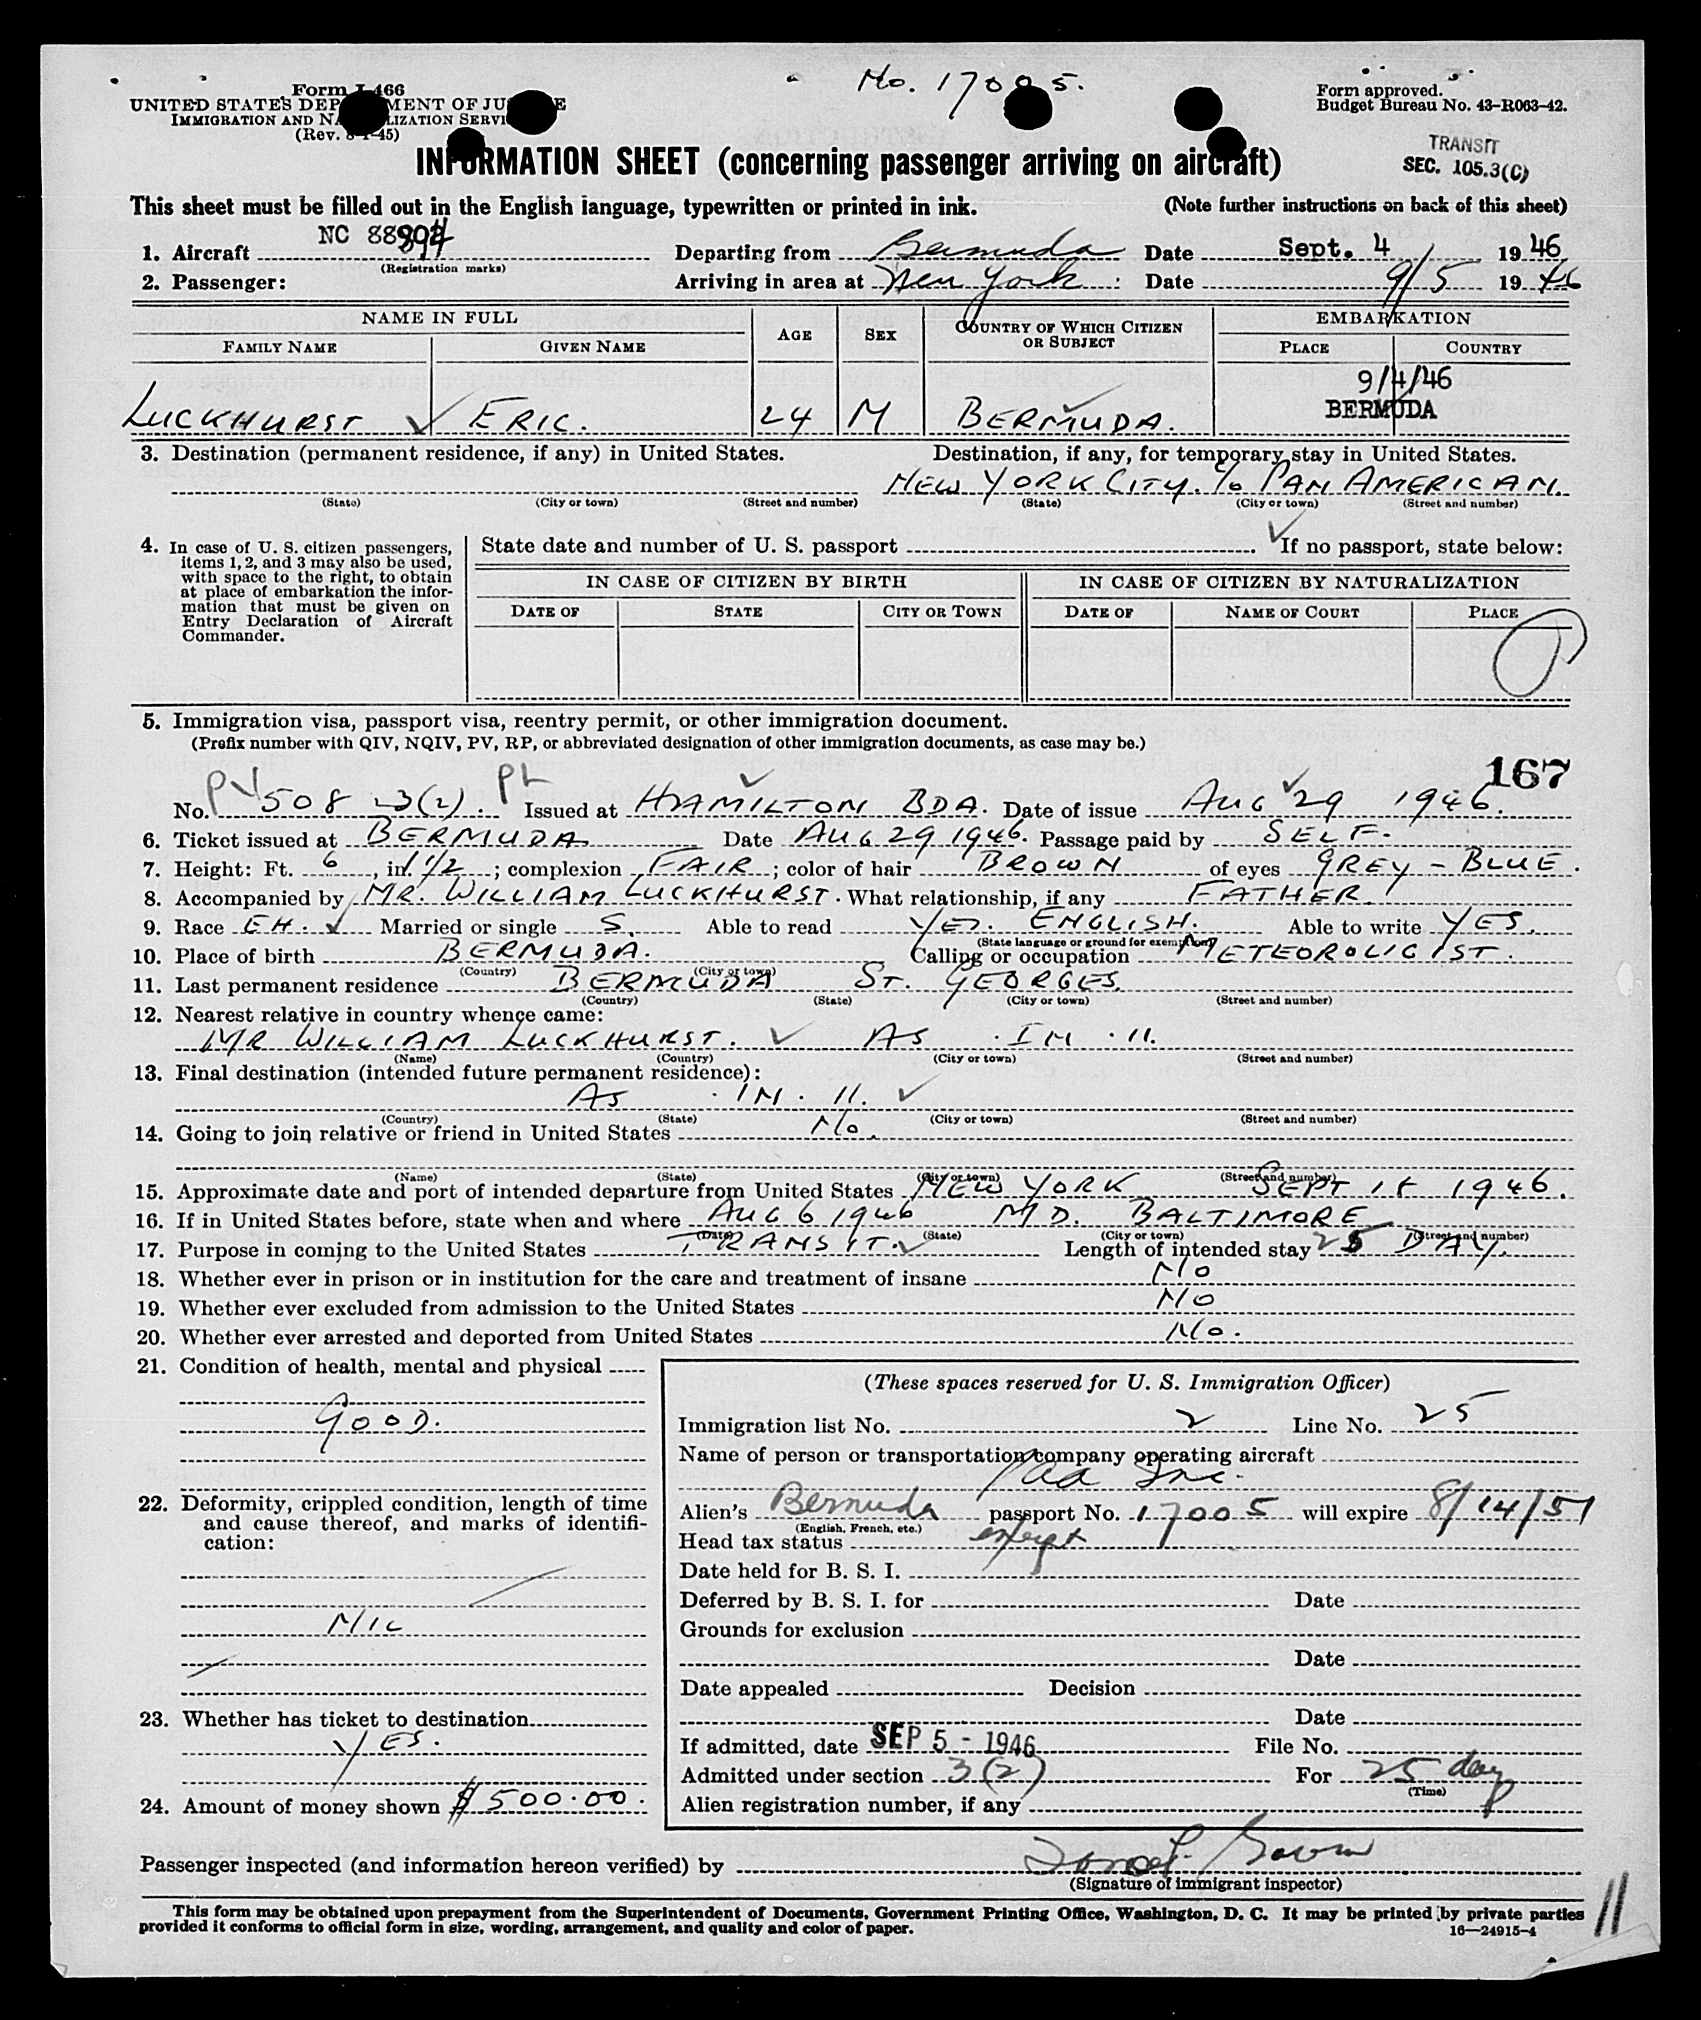 No. 17005.
Form I-466
UNITED STATES DEPARTMENT OF JUSTICE
IMMIGRATION AND NATURALIZATION SERVICE
(Rev. 8-1-45)
Form approved.
Budget Bureau No. 43-R063-42.
TRANSIT
SEC. 105.3(C)
INFORMATION SHEET (concerning passenger arriving on aircraft)
This sheet must be filled out in the English language, typewritten or printed in ink. (Note further instructions on back of this sheet)
1. Aircraft NC Departing from Bermuda Date Sept. 4 1946
(Registration marks)
2. Passenger: Arriving in area at New York Date 9/5 1946
NAME IN FULL AGE SEX COUNTRY OF WHICH CITIZEN OR SUBJECT EMBARKATION
FAMILY NAME GIVEN NAME PLACE COUNTRY
9/4/46
LUCKHURST ERIC. 24 M BERMUDA. BERMUDA
3. Destination (permanent residence, if any) in United States. Destination, if any, for temporary stay in United States.
NEW YORK CITY. c/o PAN AMERICAN.
(State) (City or town) (Street and number) (State) (City or town) (Street and number)
4. In case of U. S. citizen passengers, items 1, 2, and 3 may also be used, with space to the right, to obtain at place of embarkation the information that must be given on Entry Declaration of Aircraft Commander.
State date and number of U. S. passport . If no passport, state below:
IN CASE OF CITIZEN BY BIRTH IN CASE OF CITIZEN BY NATURALIZATION
DATE OF STATE CITY OR TOWN DATE OF NAME OF COURT PLACE
5. Immigration visa, passport visa, reentry permit, or other immigration document.
(Prefix number with QIV, NQIV, PV, RP, or abbreviated designation of other immigration documents, as case may be.)
167
No. PV 508 3(2). Issued at HAMILTON BDA. Date of issue AUG 29 1946.
6. Ticket issued at BERMUDA Date AUG 29 1946. Passage paid by SELF.
7. Height: Ft. 6, in. 1 1/2; complexion FAIR; color of hair BROWN of eyes GREY - BLUE.
8. Accompanied by MR. WILLIAM LUCKHURST. What relationship, if any FATHER.
9. Race EH. Married or single S. Able to read YES. ENGLISH. Able to write YES.
(State language or ground for exemption)
10. Place of birth BERMUDA. Calling or occupation METEOROLIGIST.
(Country) (City or town)
11. Last permanent residence BERMUDA ST. GEORGES.
(Country) (State) (City or town) (Street and number)
12. Nearest relative in country whence came:
MR WILLIAM LUCKHURST. AS IN 11.
(Name) (Country) (City or town) (Street and number)
13. Final destination (intended future permanent residence):
AS IN 11.
(Country) (State) (City or town) (Street and number)
14. Going to join relative or friend in United States No.
(Name) (State) (City or town) (Street and number)
15. Approximate date and port of intended departure from United States NEW YORK SEPT 1946.
16. If in United States before, state when and where AUG 6 1946 MD. BALTIMORE
(Date) (State) (City or town) (Street and number)
17. Purpose in coming to the United States TRANSIT. Length of intended stay 25 DAY.
18. Whether ever in prison or in institution for the care and treatment of insane NO
19. Whether ever excluded from admission to the United States NO
20. Whether ever arrested and deported from United States NO.
21. Condition of health, mental and physical
GOOD.
22. Deformity, crippled condition, length of time and cause thereof, and marks of identification:
NIL
23. Whether has ticket to destination
YES.
24. Amount of money shown $500.00.
(These spaces reserved for U. S. Immigration Officer)
Immigration list No. 2 Line No. 25
Name of person or transportation company operating aircraft
Paa Inc.
Alien's Bermuda passport No. 17005 will expire 8/14/51
(English, French, etc.)
Head tax status exempt
Date held for B. S. I.
Deferred by B. S. I. for Date
Grounds for exclusion
Date
Date appealed Decision
Date
If admitted, date SEP 5 - 1946 File No.
Admitted under section 3(2) For 25 day
(Time)
Alien registration number, if any
Passenger inspected (and information hereon verified) by
(Signature of immigrant inspector)
This form may be obtained upon prepayment from the Superintendent of Documents, Government Printing Office, Washington, D. C. It may be printed by private parties
provided it conforms to official form in size, wording, arrangement, and quality and color of paper. 16—24915-4
11